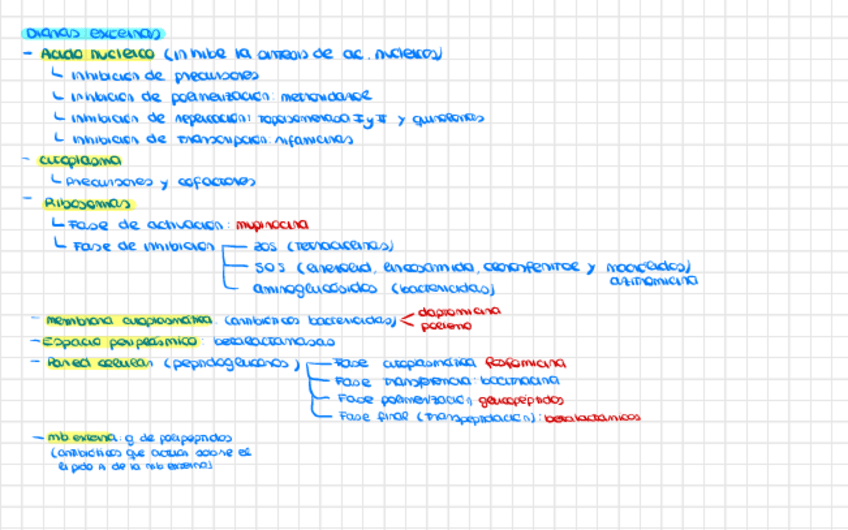 Dianas externas
- Acido nucleico (inhibe la sintesis de ac. nucleicos)
inhibición de precursores
inhibición de polimerización: metronidazol
inhibición de replicación: topoisomerasa II y IV y quinolonas
inhibición de transcripción: rifamicinas
- citoplasma
precursores y cofactores
- Ribosomas
Fase de activación: mupirocina
Fase de inhibición 30S (tetraciclinas)
50S (linezolid, lincosamida, cloranfenicol y macrólidos)
azitromicina
aminoglucósidos (bactericidas)
- membrana citoplasmática (antibióticos bactericidas) daptomicina
polieno
- Espacio periplásmico: betalactamasas
- Pared celular (peptidoglucanos) Fase citoplasmática fosfomicina
Fase transferencia: bacitracina
Fase polimerización glucopéptidos
Fase final (transpeptidación): betalactámicos
- mb externa: g de polipéptidos
(antibióticos que actúan sobre el
lípido A de la mb externa)